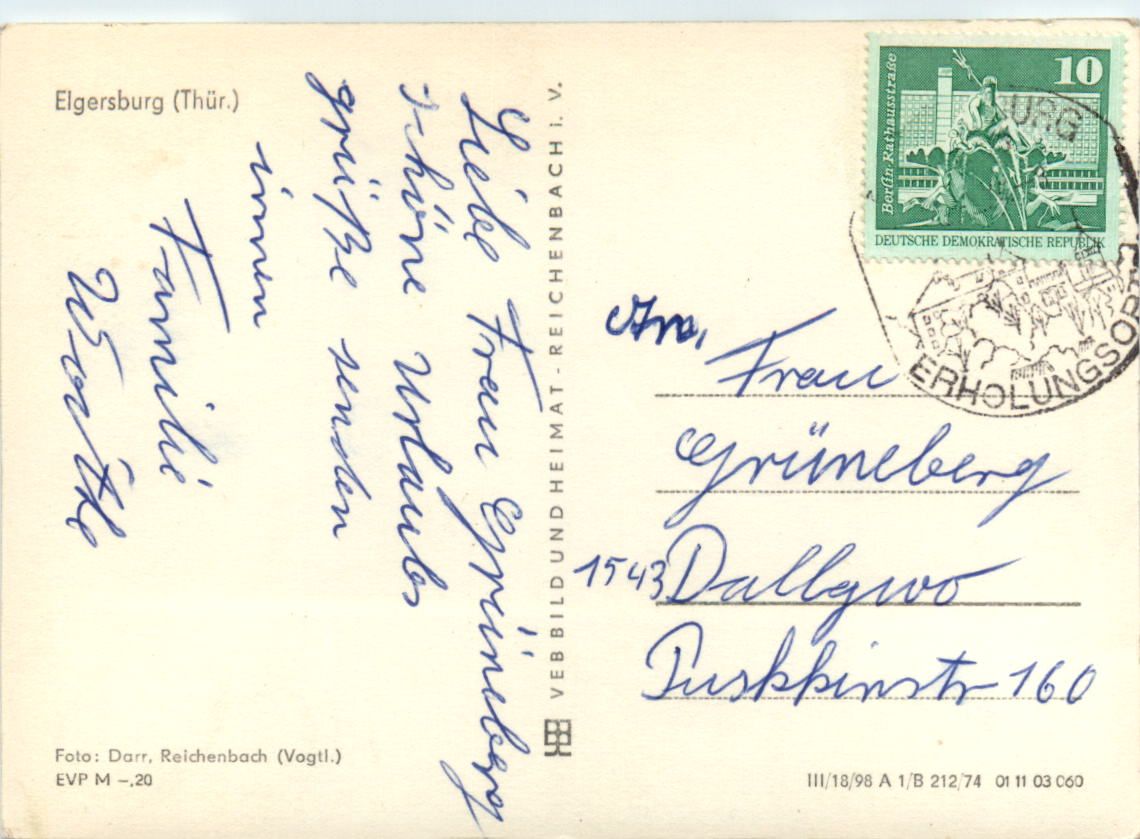 Elgersburg (Thür.)
Liebe Frau Grüneberg
Schöne Urlaubs
grüße senden
innen
Familie
Foto: Darr, Reichenbach (Vogtl.)
EVP M –,20
VEB BILD UND HEIMAT - REICHENBACH i. V.
10
Berlin-Rathausstraße
DEUTSCHE DEMOKRATISCHE REPUBLIK
BURG
ERHOLUNGSORT
An,
Frau
Grüneberg
1543 Dallgwo
Puskkinstr 160
III/18/98 A 1/B 212/74 01 11 03 060